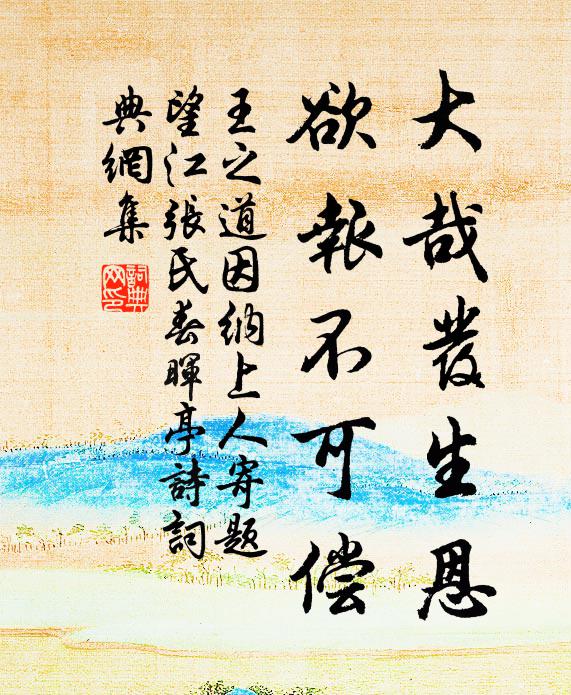 大哉發生恩
欲報不可偿
王之道因纳上人寄题
望江張氏春暉亭詩詞
典網集
詞典网印